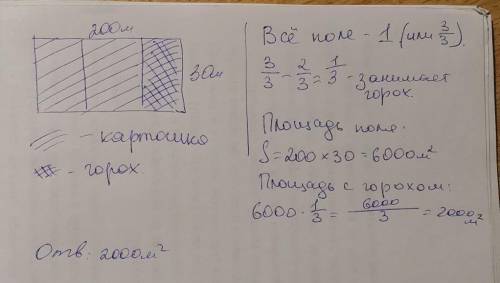 200м
30м
– картошко
– горох.
Отв: 2000м²
Всё поле – 1 (или 3/3).
3/3 – 2/3 = 1/3 – занимает
горох.
Площадь поле.
S = 200 × 30 = 6000м²
Площадь с горохом:
6000 · 1/3 = 6000/3 = 2000м²